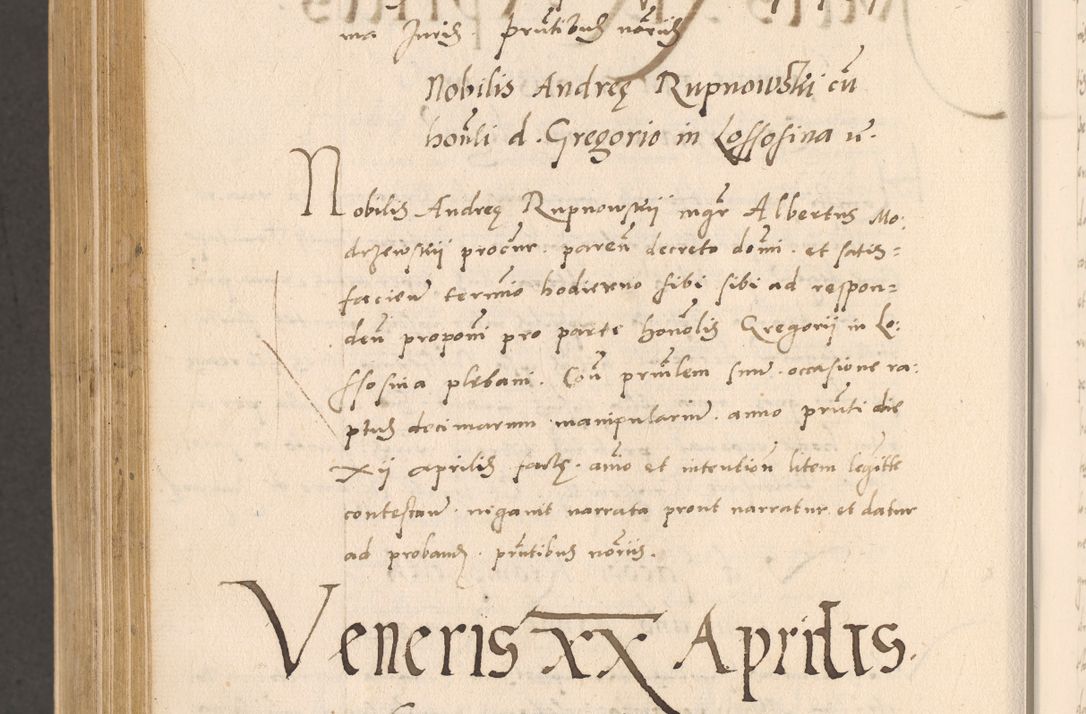 ma Juris. prntibus notriis
Nobilis Andreę Rupnowskii cu
honli d. Gregorio in Lossosina u.
Nobilis Andreę Rupnowskii mgr Albertus Mo:
drzewskii procur. paren decreto domi. et satis=
facien termio hodierno sibi sibi ad respon=
den proponi pro parte honolis Gregorii in Lo:
ssosina plebani. Con priulem sum. occasione ra:
ptus decimarum manipularium. anno prnti die
xii aprilis factę. animo et intention litem legitte
contestan. nigauit narrata prout narratur et datur
ad proband. prntibus notriis.
Veneris xx Aprilis.